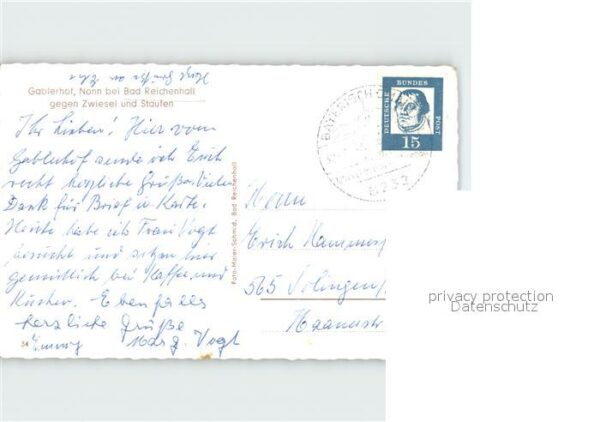 Gablerhof, Nonn bei Bad Reichenhall
gegen Zwiesel und Staufen
Ihr Lieben! Hier vom
Gablerhof sende ich Euch
recht herzliche Grüße. Vielen
Dank für Brief u. Karte.
Heute habe ich Frau Vogt
besucht und sitzen hier
gemütlich bei Kaffee und
Kuchen. Ebenfalls
herzliche Grüße
Marg. Vogt
34
Foto-Maier-Schmid, Bad Reichenhall
DEUTSCHE
BUNDES
POST
15
BAYERISCH
Herrn
Erich Hammes
565 Solingen
privacy protection
Datenschutz